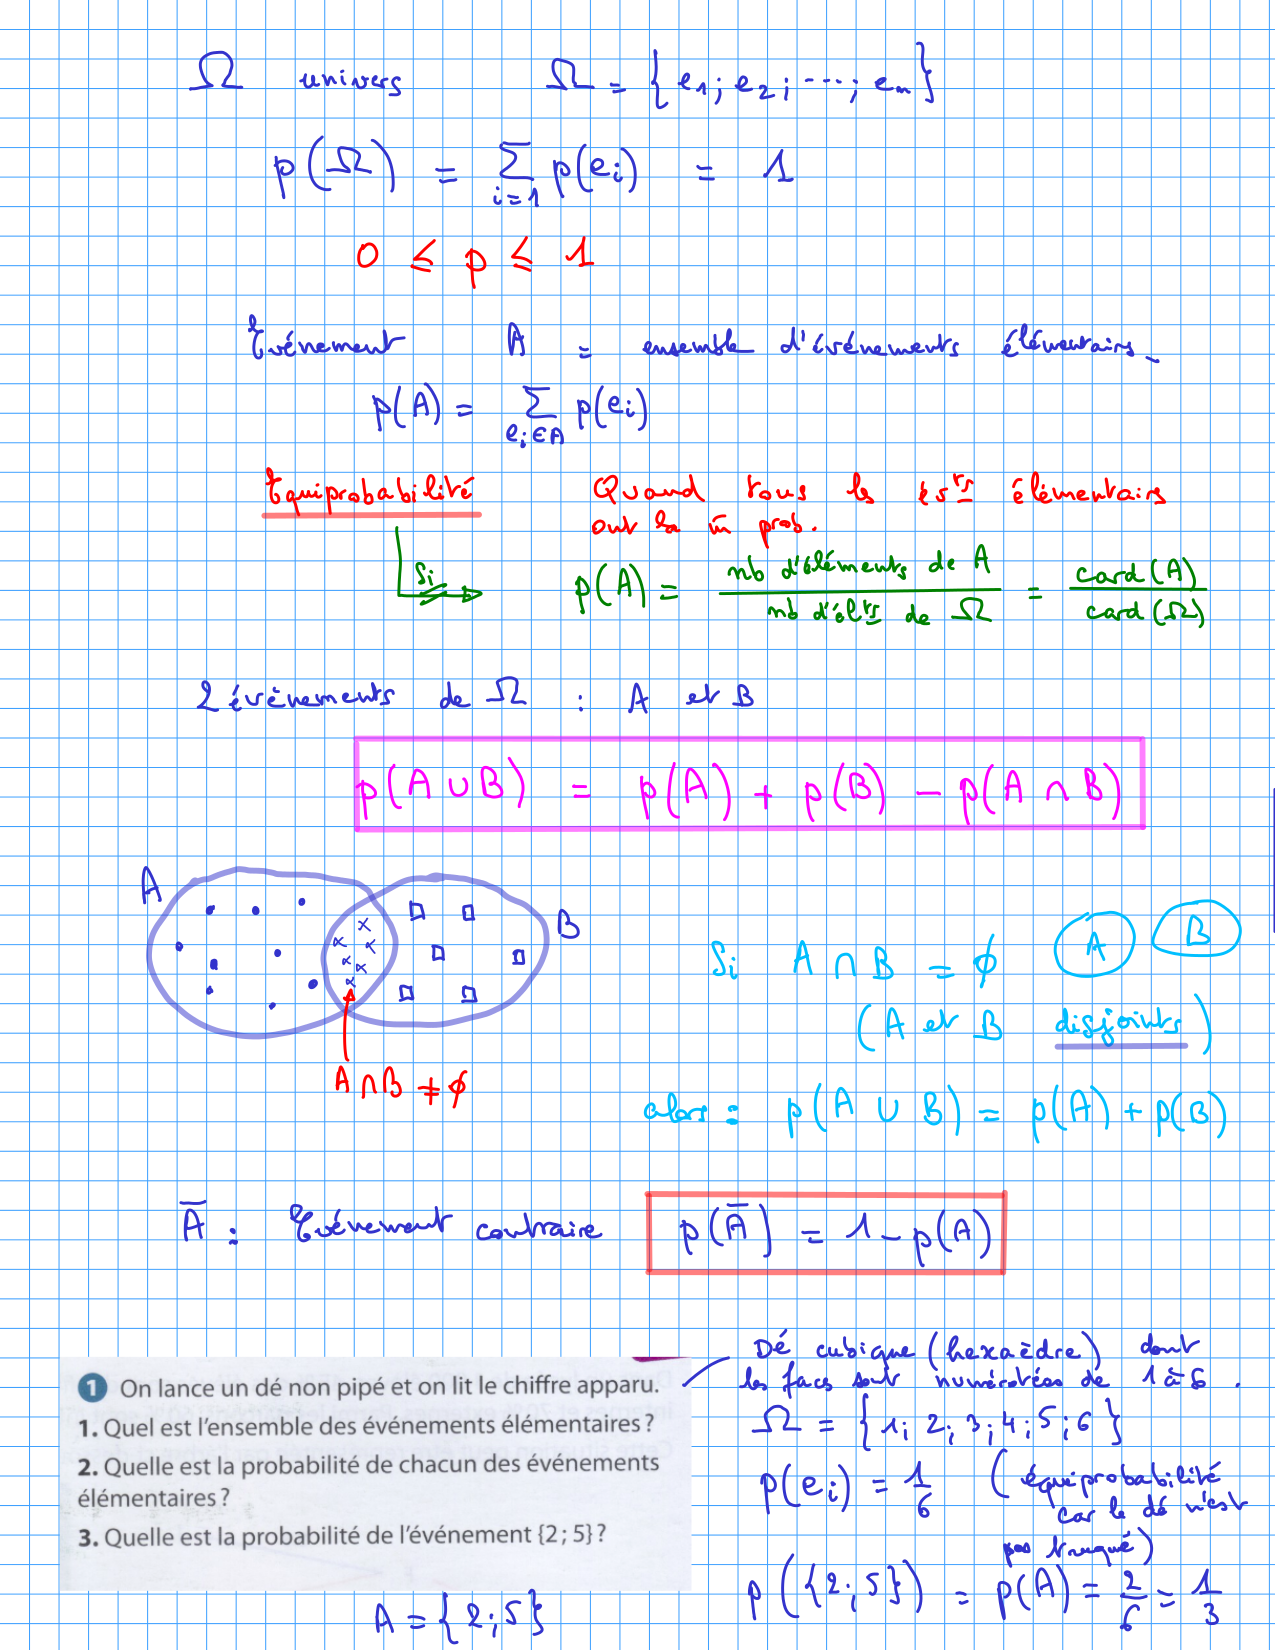 Ω univers Ω = { e1 ; e2 ; ... ; en }
p(Ω) = Σ i=1 p(ei) = 1
0 ≤ p ≤ 1
Événement A = ensemble d'événements élémentaires.
p(A) = Σ ei ∈ A p(ei)
Equiprobabilité Quand tous les évts élémentaires
ont la m̄ prob.
Si p(A) = nb d'éléments de A / nb d'élts de Ω = card(A) / card(Ω)
2 événements de Ω : A et B
p(A ∪ B) = p(A) + p(B) - p(A ∩ B)
A B
A ∩ B ≠ ∅
Si A ∩ B = ∅ A B
(A et B disjoints)
alors : p(A ∪ B) = p(A) + p(B)
Ā : Événement contraire p(Ā) = 1 - p(A)
1 On lance un dé non pipé et on lit le chiffre apparu.
1. Quel est l'ensemble des événements élémentaires ?
2. Quelle est la probabilité de chacun des événements
élémentaires ?
3. Quelle est la probabilité de l'événement {2 ; 5} ?
A = { 2 ; 5 }
Dé cubique (hexaèdre) dont
les faces sont numérotées de 1 à 6 .
Ω = { 1 ; 2 ; 3 ; 4 ; 5 ; 6 }
p(ei) = 1/6 (équiprobabilité
car le dé n'est
pas truqué)
p({2 ; 5}) = p(A) = 2/6 = 1/3